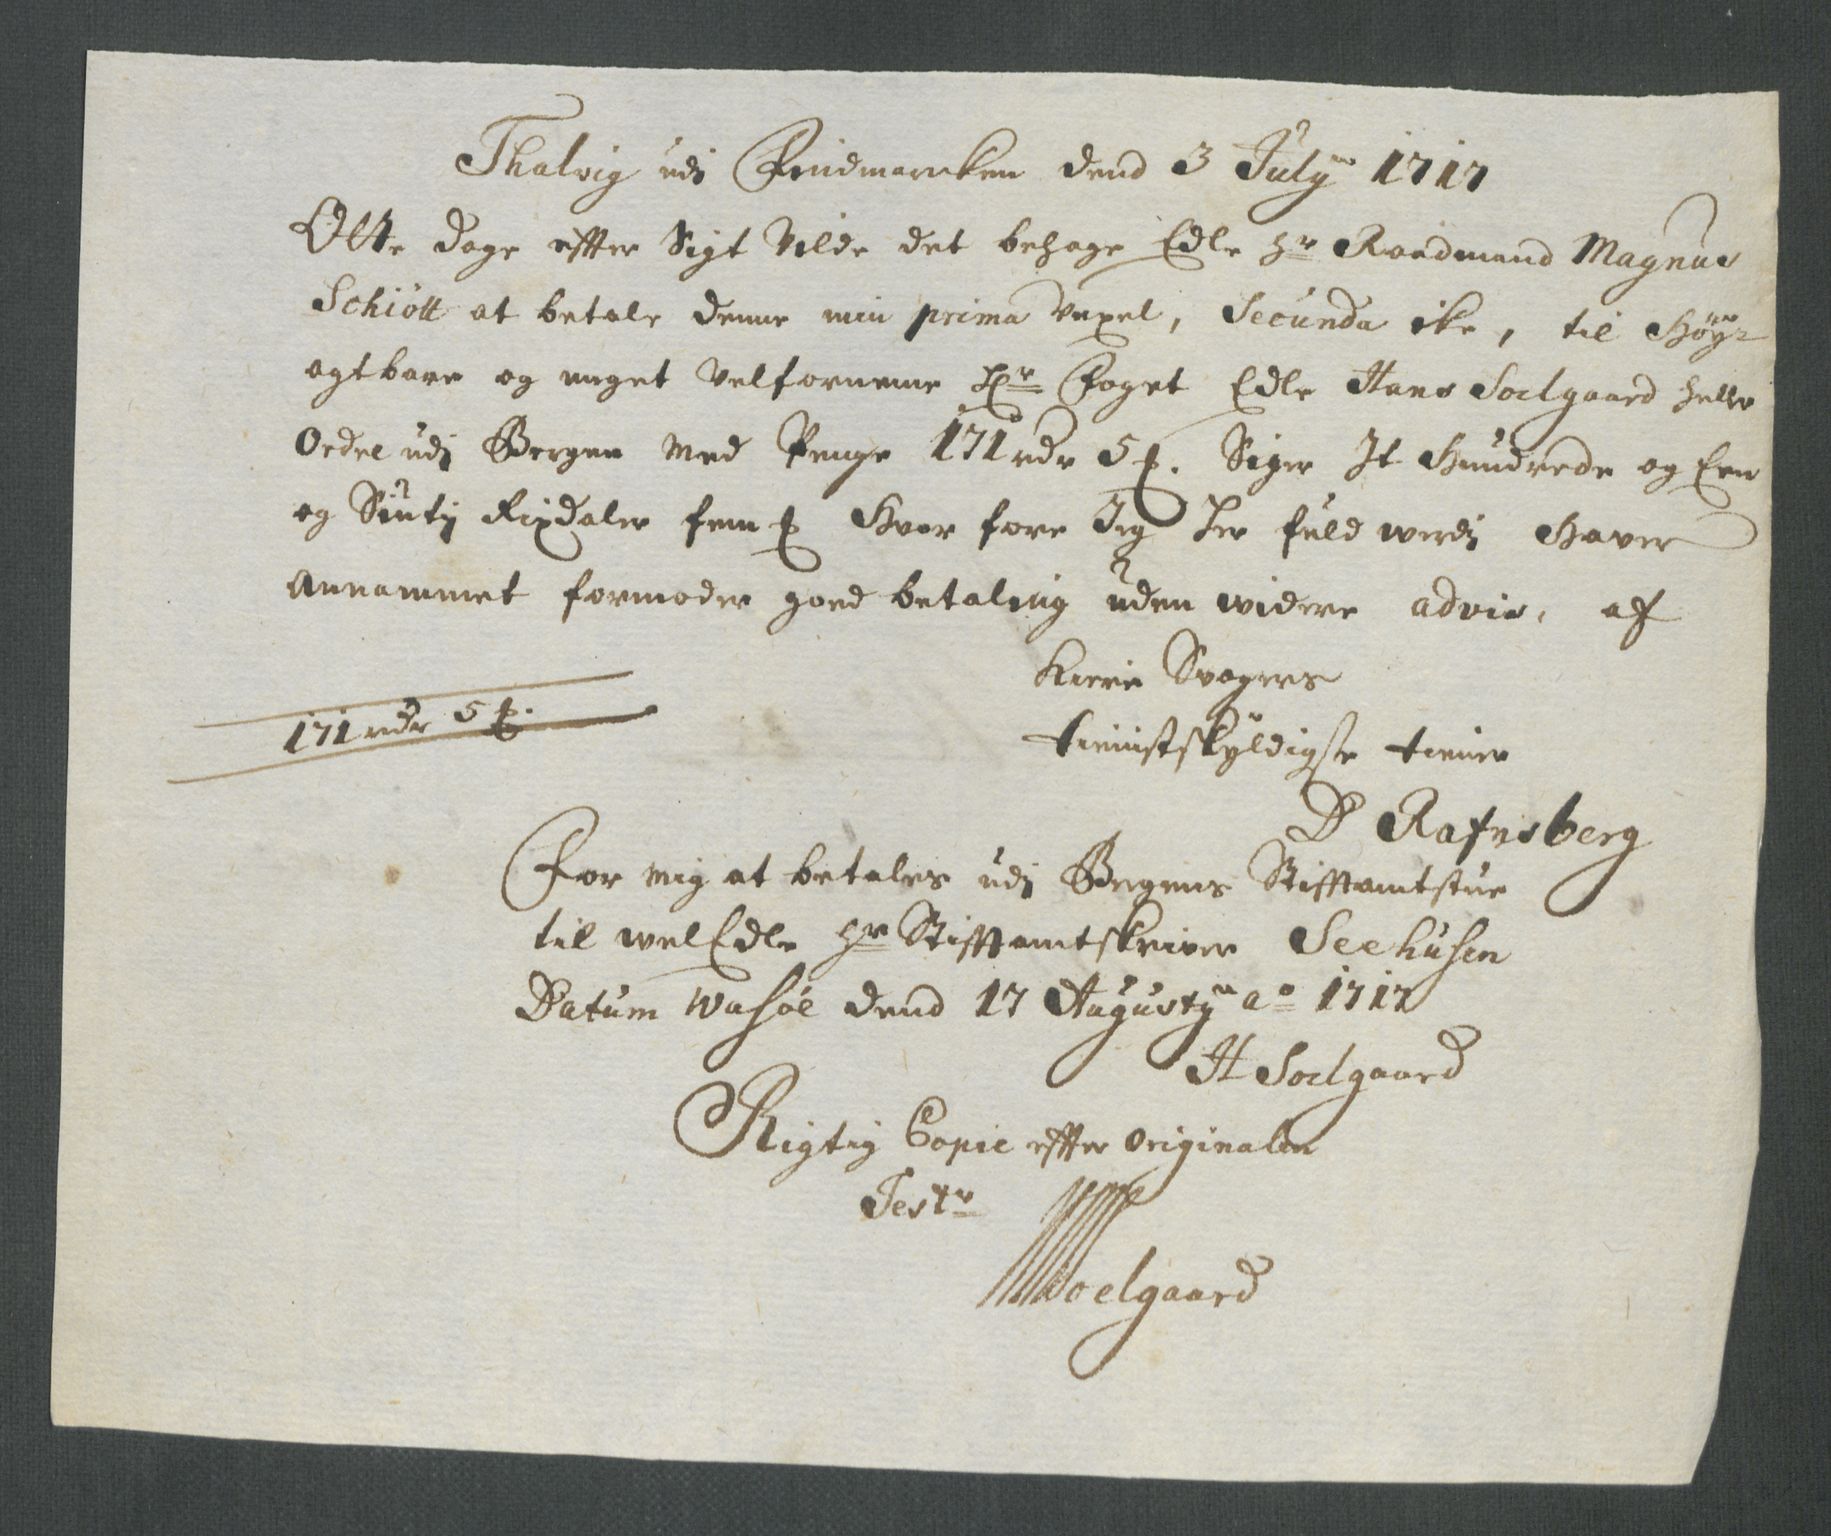 Thalvig udj Findmarcken dend 3 July 1717
Otte dage effter Sigt Vilde det behage Edle Hr Raadmand Magnus
Schiött at betale denne min prima Vexel, Secunda ike, til Høy
agtbare og meget Velfornemme Hr Foget Edle Hans Soelgaard heller
Ordre udj Bergen med Penge 171 rdr 5 ß. Siger It Hundrede og Een
og Siutj Rixdaler fem ß Hvor fore Jeg her fuld werdj Haver
Annammet formoder goed betaling uden widere advis, af
Kiere Svogers
tienistskyldigste tiener
171 rdr 5 ß.
D Rafnsberg
For mig at betales udj Bergens Stifftamtstue
til welEdle Hr Stifftamtskriver Seehusen
Datum Wasöe dend 17 Augusty ao 1717
H Soelgaard
Rigtig Copie effter Originalen
Test
Soelgaard